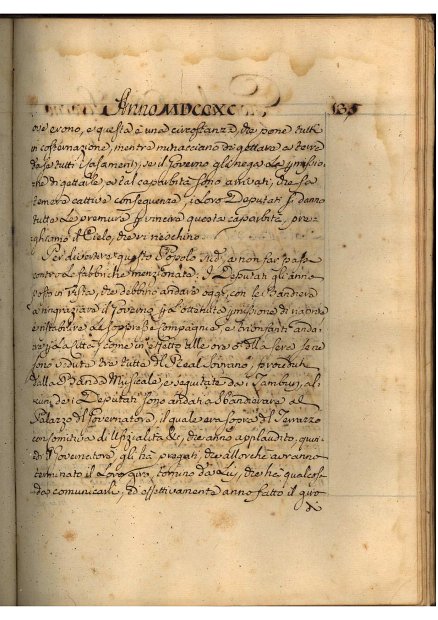 Anno MDCCXC 135
ove erono, e questa è una circostanza, che pone tutti
in costernazione, mentre minacciano di gettare a terra
da se tutti i Casamenti, se il Governo gli nega la
che di gettarle, a tal caparbità sono arrivati, che si
temeva cattive consequenze, i Loro Deputati si danno
tutta la premura per vincere questa caparbità, pre
ghiamo il Cielo, che vi rieschino.
Per divertire questo Popolo a non far passi
contro le fabbriche menzionate, i Deputati gli anno
posto in vista, che debbino andare oggi, con le Bandiere
a ringraziare il Governo per l'ottenuta di riaprire
e ristabilire le soppresse Compagnie, e trionfanti anda
re per la Città, come in effetto alle ore della sera se ne
sono vedute tre tutte Real Sovrano, precedute
dalla Banda Musicale, e seguitate da i Tamburi, al
cuni dei Deputati sono andati a sbandierare al
Palazzo del Governatore, il quale era sopra il Terrazzo
con comitiva di Ufizialità, che anno applaudito, quin
di il Governatore gli ha pregati, che allorchè avranno
terminato il Loro giro, tornino da Lui, che ha qualcosa
da comunicarli, ed effettivamente anno fatto il giro